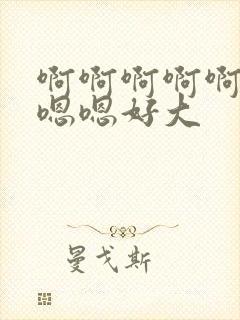 啊啊啊啊啊
嗯嗯好大
曼戈斯